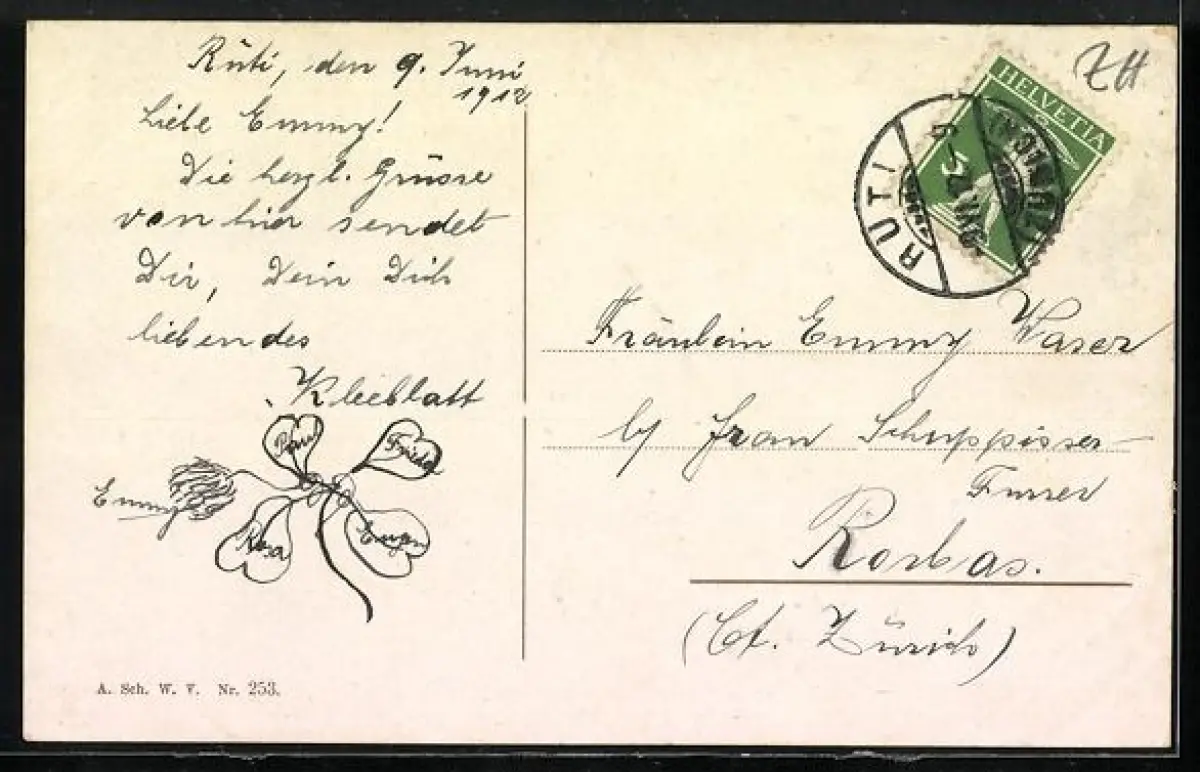 Rüti, den 9. Juni
1912
Liebe Emmy!
Die herzl. Grüsse
von hier sendet
Dir, Dein Dich
liebendes
Kleeblatt
Paul
Frida
Emmy
Rosa
Eugen
A. Sch. W. V. Nr. 253.
ZH
HELVETIA
RUTI
Fräulein Emmy Waser
by Frau Schuppisser-
Furrer
Rorbas.
(Ct. Zürich)